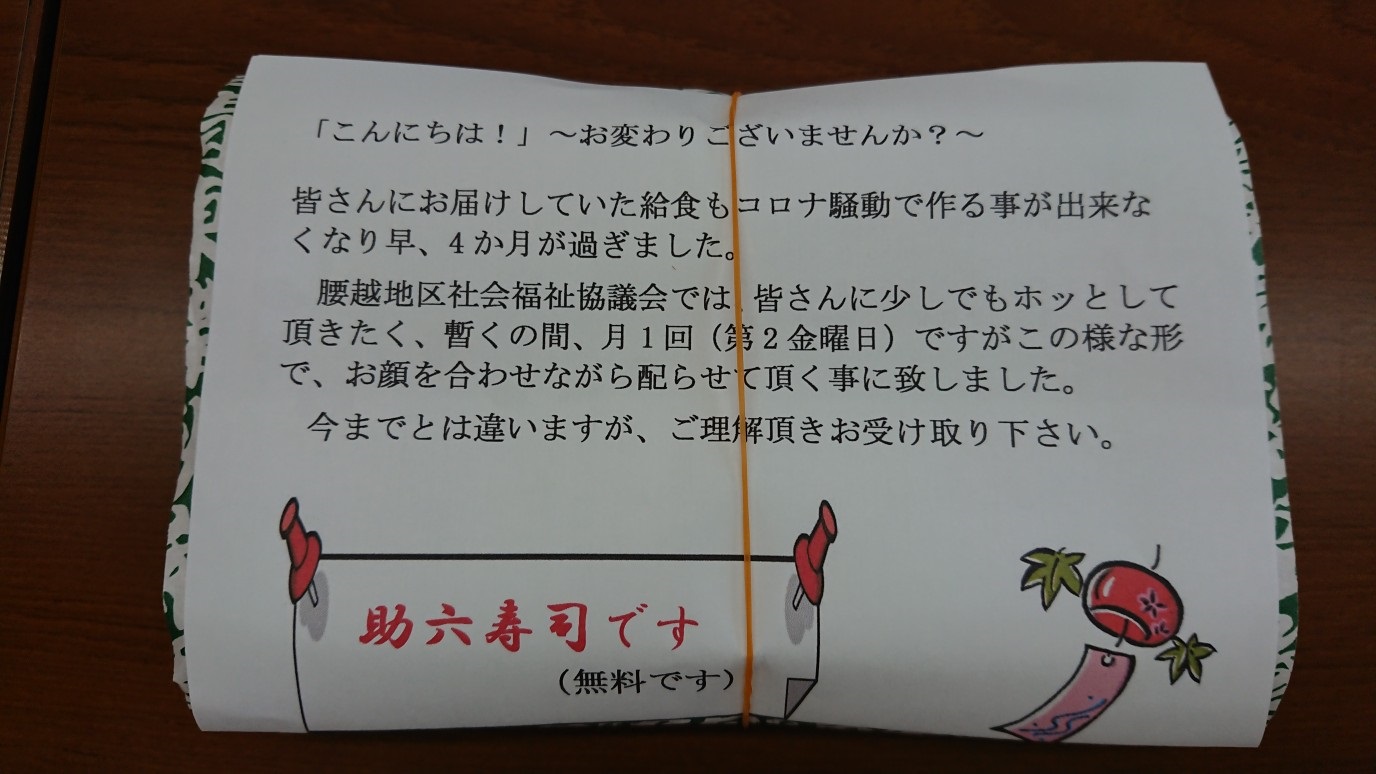 「こんにちは！」～お変わりございませんか？～
皆さんにお届けしていた給食もコロナ騒動で作る事が出来な
くなり早、４か月が過ぎました。
腰越地区社会福祉協議会では、皆さんに少しでもホッとして
頂きたく、暫くの間、月１回（第２金曜日）ですがこの様な形
で、お顔を合わせながら配らせて頂く事に致しました。
今までとは違いますが、ご理解頂きお受け取り下さい。
助六寿司です
（無料です）